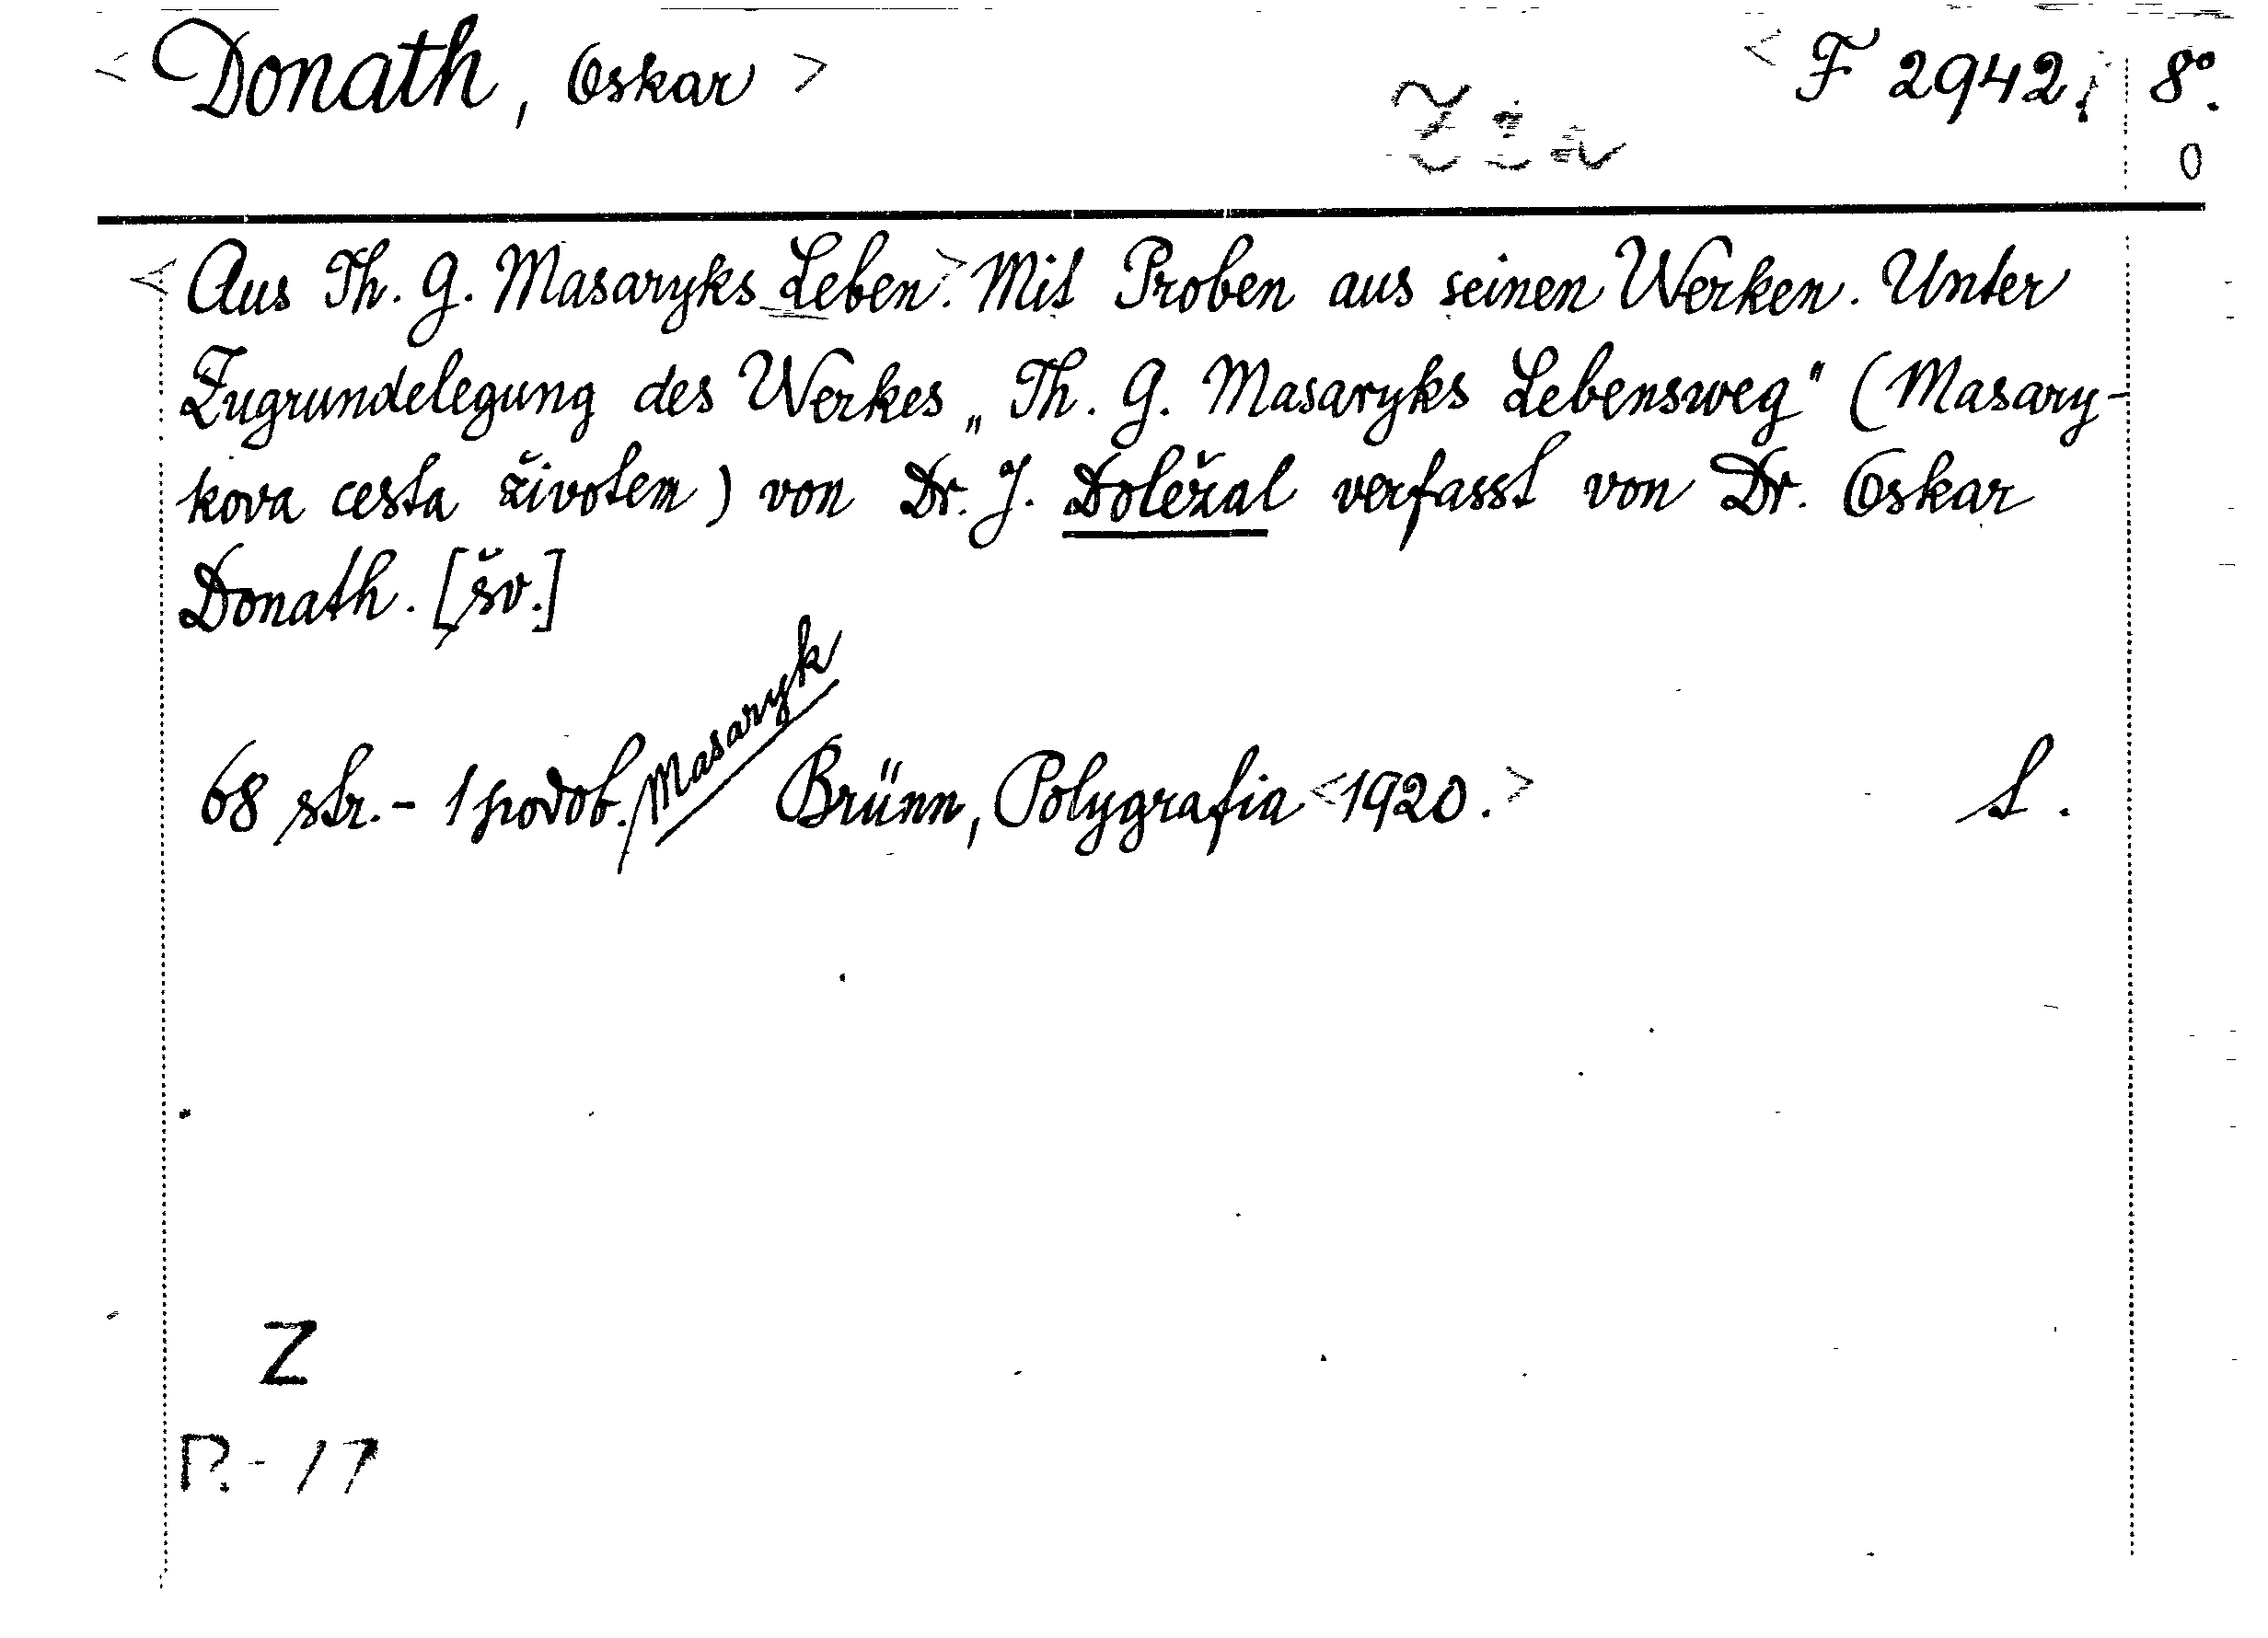 < Donath, Oskar > < F 2942. 8°.
0
< Aus Th. G. Masaryks Leben. > Mit Proben aus seinen Werken. Unter
Zugrundelegung des Werkes „Th. G. Masaryks Lebensweg" (Masary-
kova cesta životem) von Dr. J. Doležal verfasst von Dr. Oskar
Donath. [šv.]
68 str. - 1 podob. / Masaryk Brünn, Polygrafia <1920.> S.
Z
P. - 17